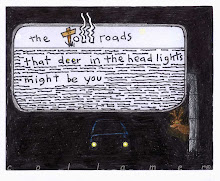 the Toll roads
that deer in the headlights
might be you